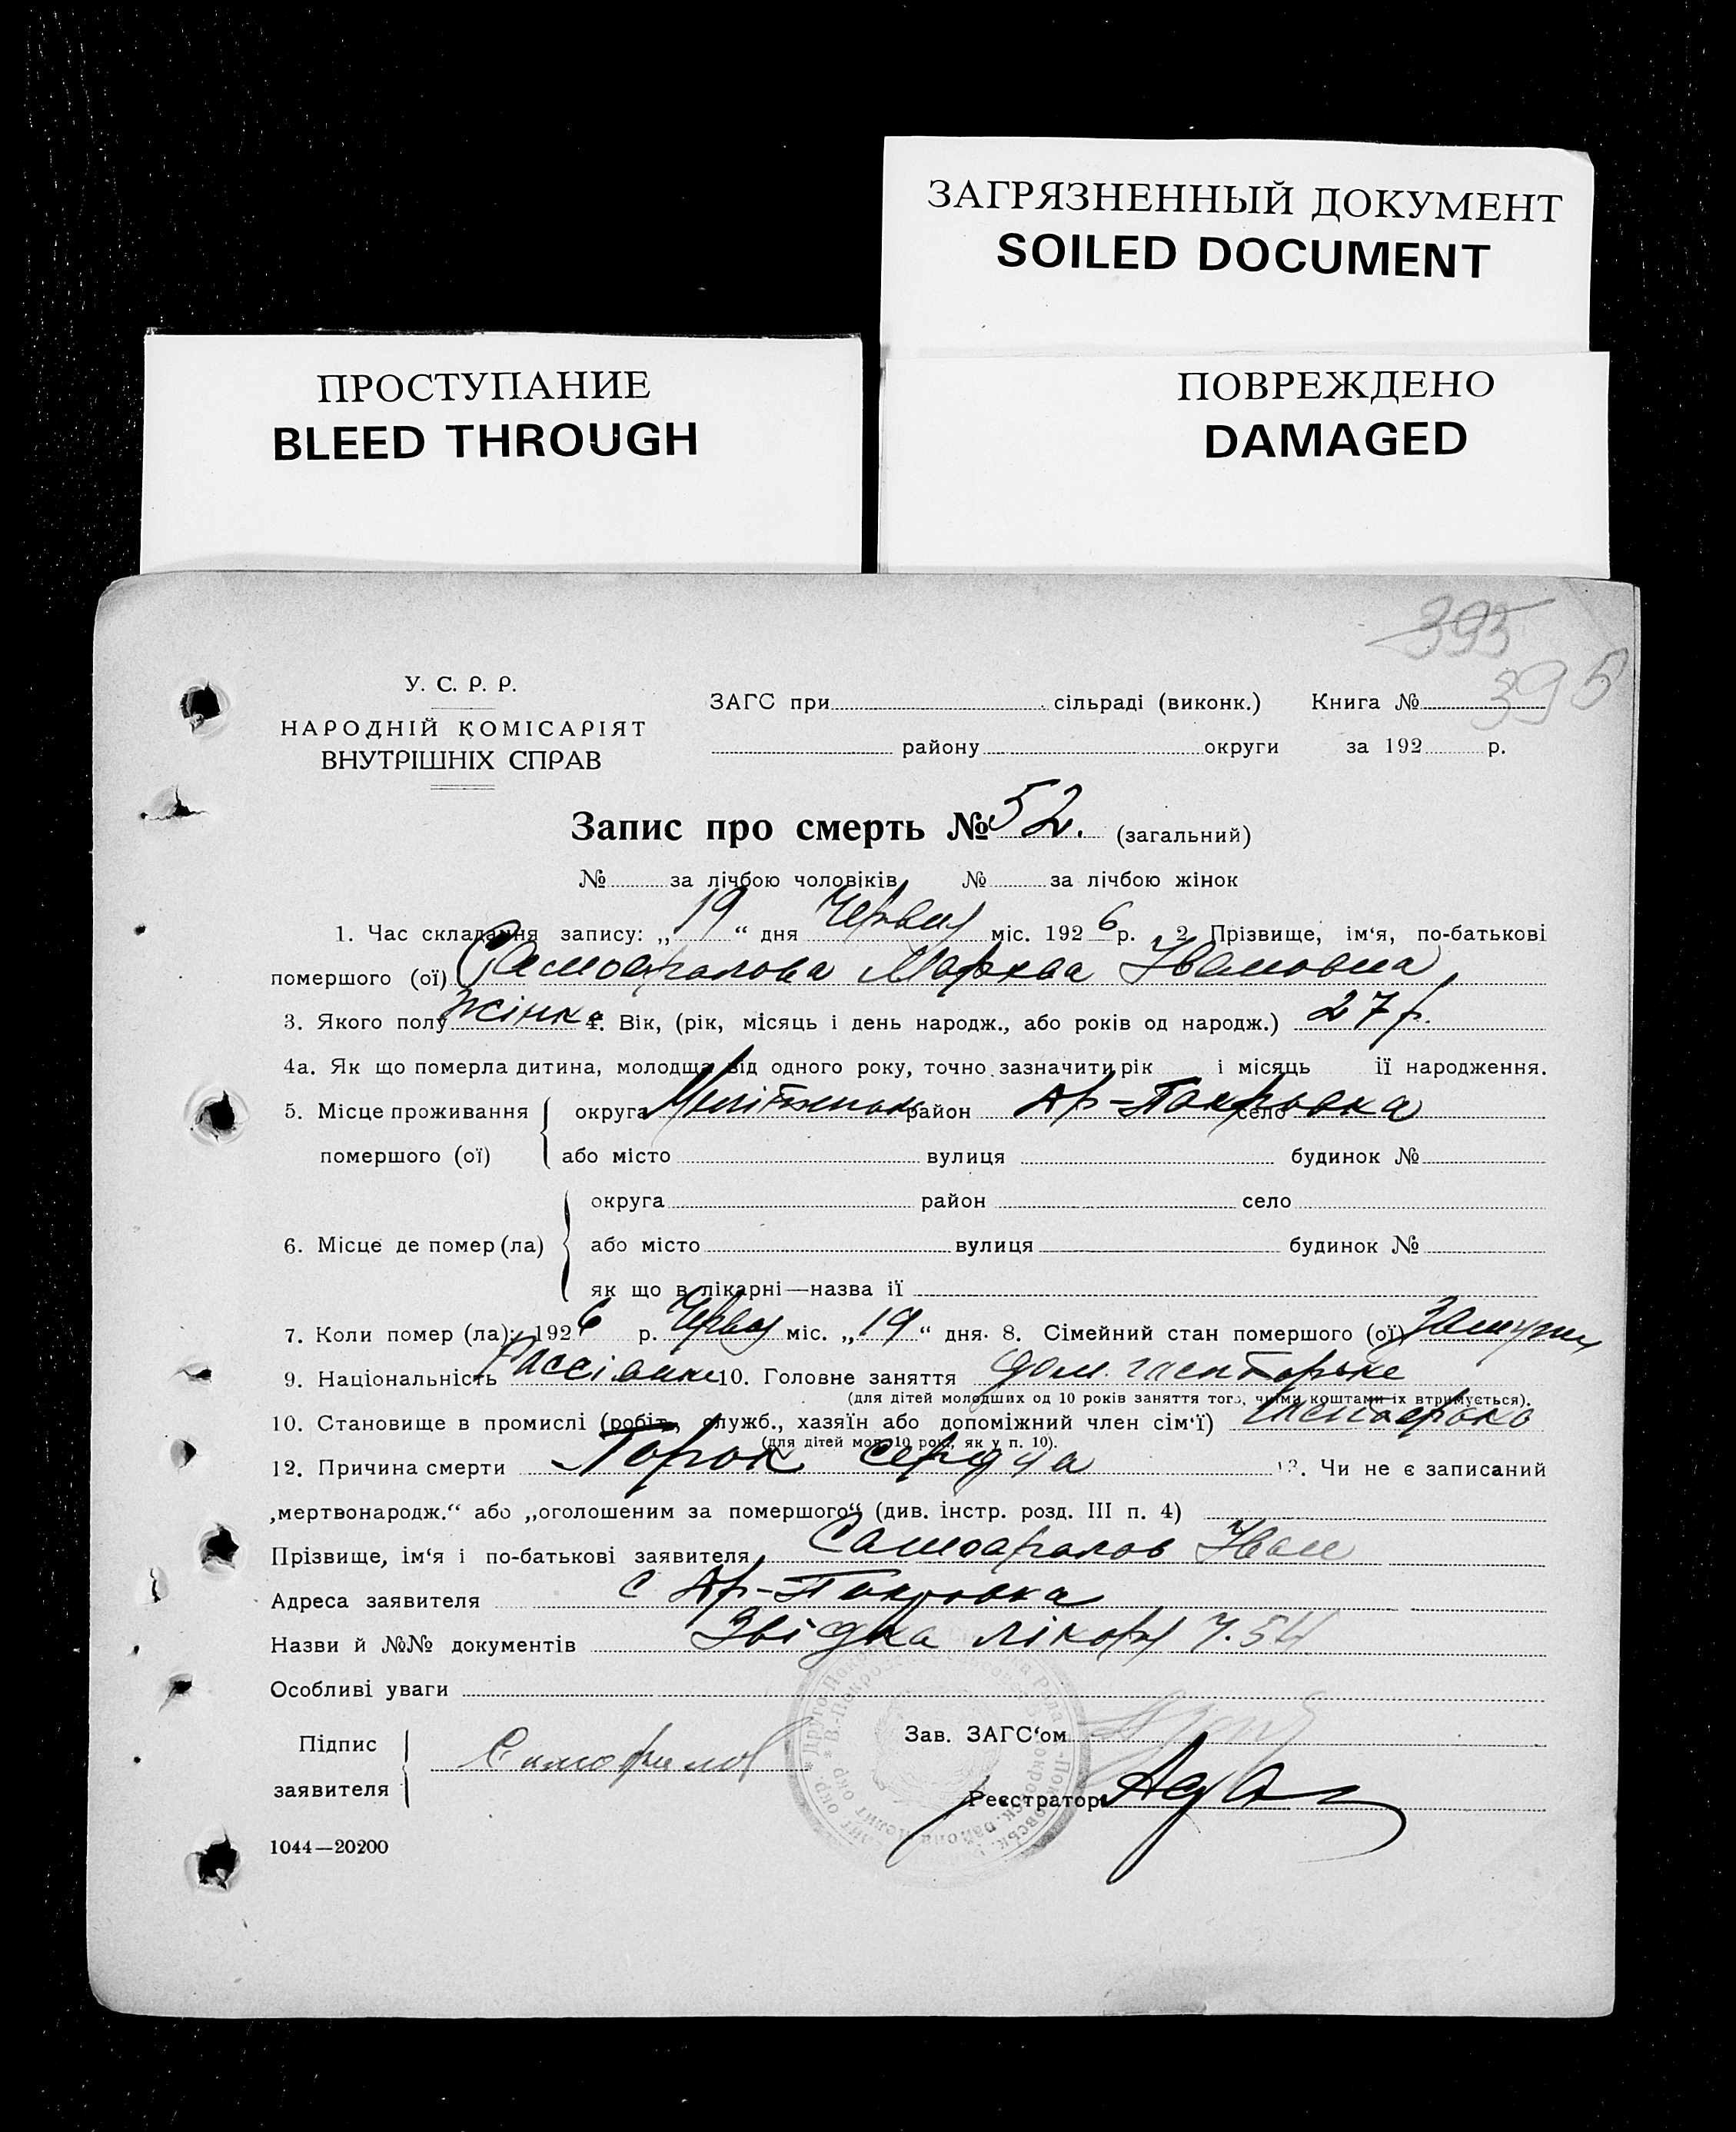 ЗАГРЯЗНЕННЫЙ ДОКУМЕНТ
SOILED DOCUMENT
ПРОСТУПАНИЕ
BLEED THROUGH
ПОВРЕЖДЕНО
DAMAGED
395
395
У. С. Р. Р.
НАРОДНІЙ КОМІСАРІЯТ
ВНУТРІШНІХ СПРАВ
ЗАГС при сільраді (виконк.) Книга №
району округи за 192 р.
Запис про смерть № 52. (загальний)
№ за лічбою чоловіків № за лічбою жінок
1. Час складання запису: „19“ дня Червня міс. 1926 р. 2. Прізвище, ім'я, по-батькові
помершого (ої) Самоаралова Марква Івановна
3. Якого полу жінка 4. Вік, (рік, місяць і день народж., або років од народж.) 27 р.
4а. Як що померла дитина, молодша від одного року, точно зазначити рік і місяць її народження.
5. Місце проживання округа район Ар-Покровка село
помершого (ої) або місто вулиця будинок №
округа район село
6. Місце де помер (ла) або місто вулиця будинок №
як що в лікарні—назва її
7. Коли помер (ла): 1926 р. Червня міс. „19“ дня. 8. Сімейний стан помершого (ої) Замужн
9. Національність 10. Головне заняття дом.
(для дітей молодших од 10 років заняття того, чиїми коштами їх втримується).
10. Становище в промислі (робіт., служб., хазяїн або допоміжний член сім'ї)
(для дітей мол. 10 рок., як у п. 10).
12. Причина смерти Порок сердца 13. Чи не є записаний
„мертвонародж.“ або „оголошеним за помершого“ (див. інстр. розд. III п. 4)
Прізвище, ім'я і по-батькові заявителя Самоаралов Іван
Адреса заявителя с Ар-Покровка
Назви й №№ документів Звідка лікаря Ч. 54
Особливі уваги
Підпис
заявителя
Зав. ЗАГС'ом
Реєстратор
1044—20200